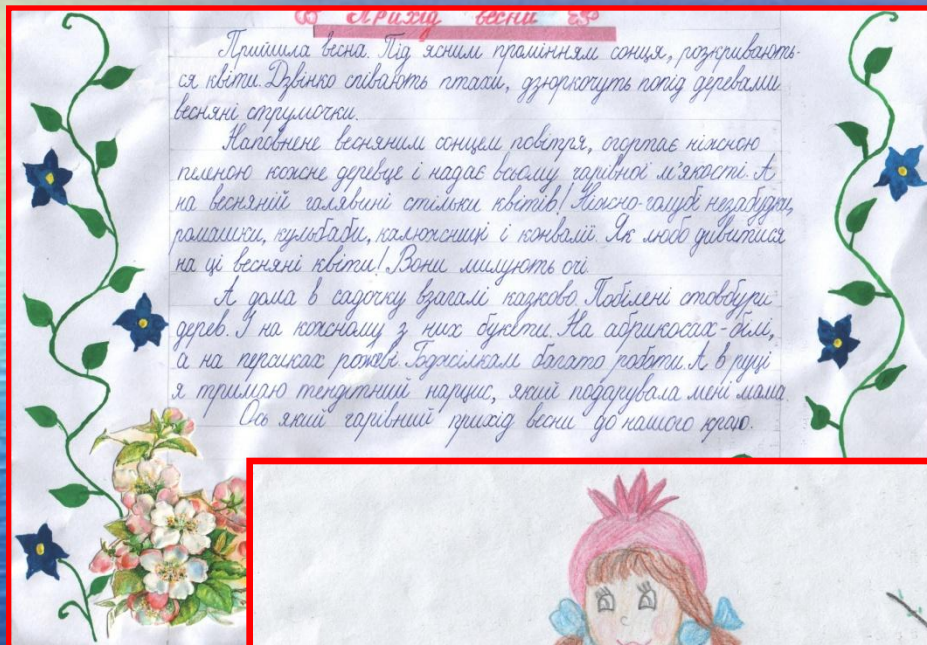 Прихід весни
Прийшла весна. Під ясним промінням сонця, розкривають-
ся квіти. Дзвінко співають птахи, дзюркочуть попід деревами
весняні струмочки.
Наповнене весняним сонцем повітря, огортає ніжною
пеленою кожне деревце і надає всьому чарівної м'якості. А
на весняній галявині стільки квітів! Ніжно-голубі незабудки,
ромашки, кульбаби, калюжниці і конвалії. Як любо дивитися
на ці весняні квіти! Вони милують очі.
А дома в садочку взагалі казково. Побілені стовбури
дерев. І на кожному з них букети. На абрикосах - білі,
а на персиках рожеві. Бджілкам багато роботи. А в руці
я тримаю тендітний нарцис, який подарувала мені мама.
Ось який чарівний прихід весни до нашого краю.